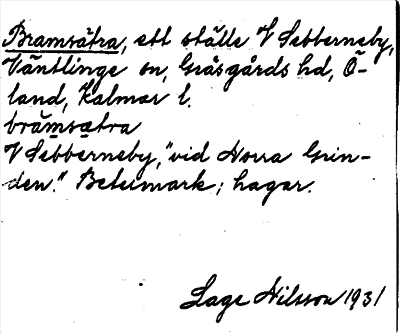 Bramsätra, ett ställe V Sebberneby,
Väntlinge sn, Gräsgårds hd, Ö-
land, Kalmar l.
brämsætra
V Sebberneby, "vid Norra Grin-
den." Betesmark; hagar.
Lage Nilsson 1931